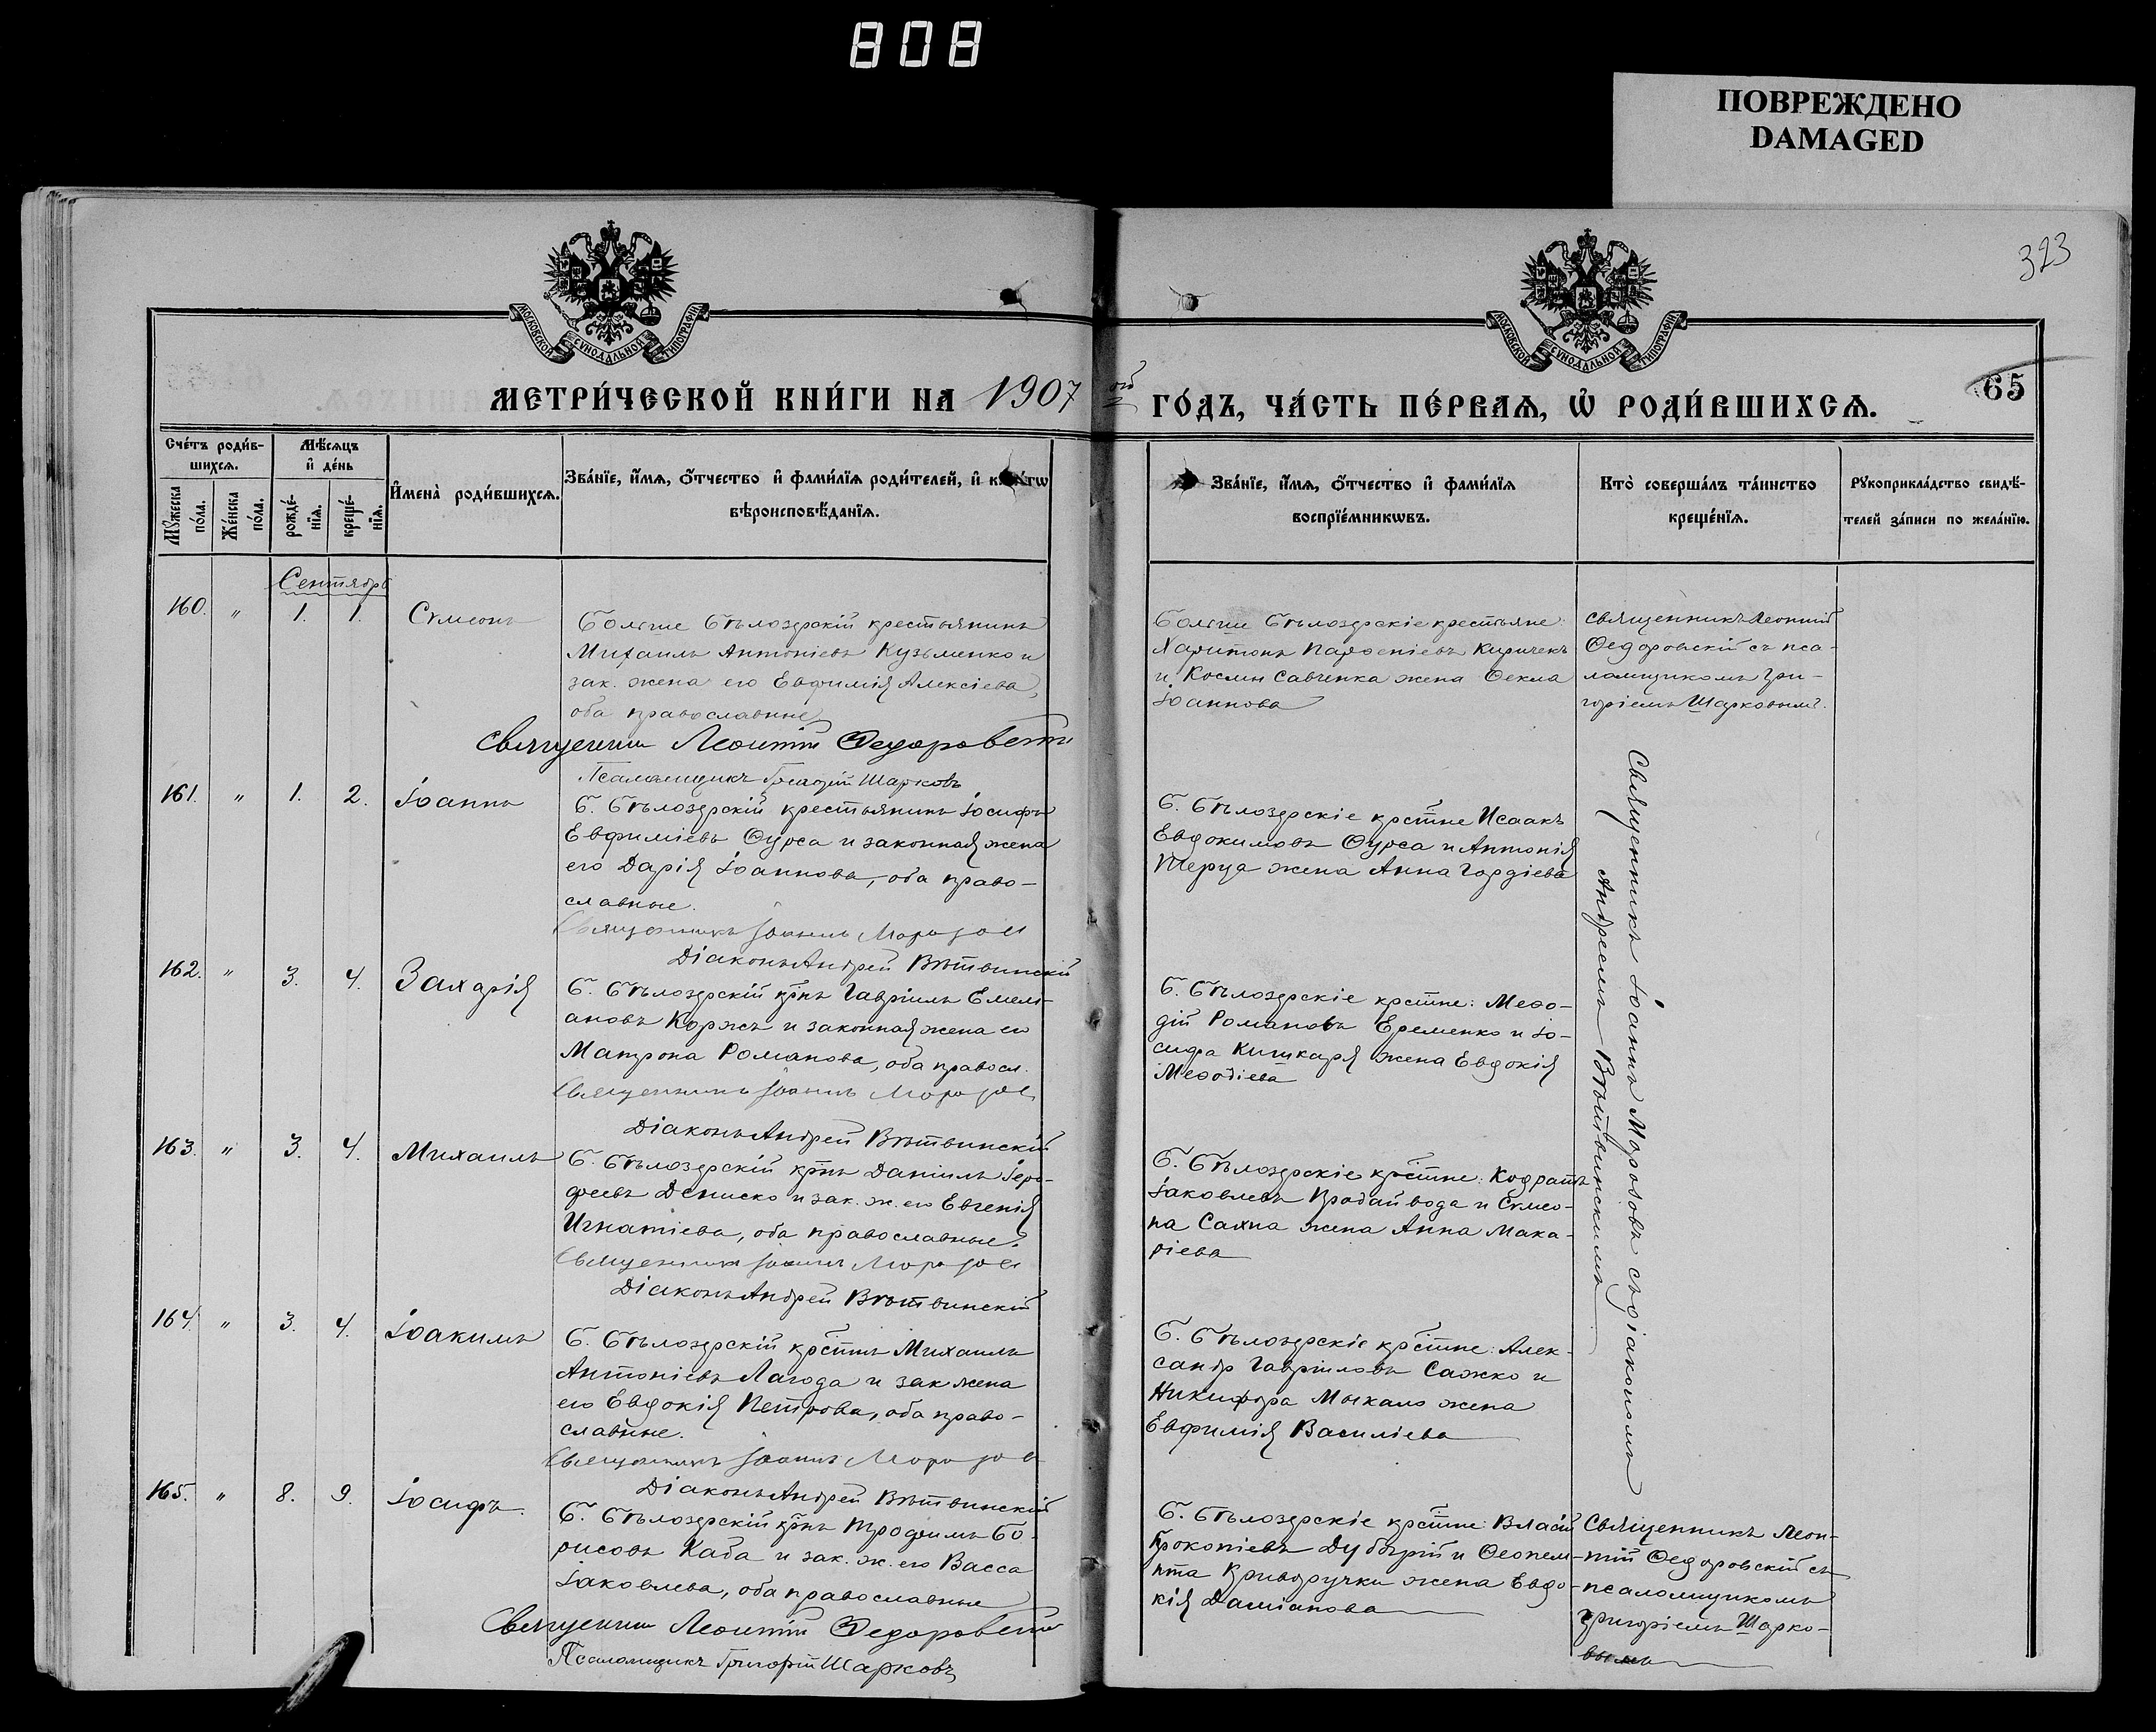 808
ПОВРЕЖДЕНО
DAMAGED
323
МОСКОВСКОЙ СѴНОДАЛЬНОЙ ТИПОГРАФІИ
МОСКОВСКОЙ СѴНОДАЛЬНОЙ ТИПОГРАФІИ
МЕТРИ́ЧЕСКОЙ КНИ́ГИ НА 1907 ой ГО́ДЪ, ЧА́СТЬ ПЕ́РВАЯ, Ѡ РОДИ́ВШИХСЯ.
65
Сче́тъ роди́в-
шихся.
Мѣ́сяцъ
и҆ де́нь
Му́жеска
по́ла.
Же́нска
по́ла.
рожде́-
нія.
креще́-
нія.
И҆мена̀ роди́вшихся.
Зва́ніе, и҆́мя, о҆́тчество и҆ фами́лія роди́телей, и҆
вѣроисповѣ́данія.
Зва́ніе, и҆́мя, о҆́тчество и҆ фами́лія
воспріе́мникѡвъ.
Кто̀ соверша́лъ та́инство
креще́нія.
Рукоприкла́дство свидѣ́-
телей за́писи по жела́нію.
Сентябрь
160. " 1. 1. Сѵмеонъ
Больше Бѣлозерскій крестьянинъ
Михаилъ Антоніевъ Кузьменко и
зак. жена его Евфимія Алексіева,
оба православные
Священник Леонтій Федоровскій
Псаломщикъ Григорій Шарковъ
Больше Бѣлозерскіе крестьяне:
Харитонъ Парѳеніевъ Киричекъ
и Космы Савченка жена Ѳекла
Іоаннова
Священникъ Леонтій
Ѳедоровскій съ пса-
ломщикомъ Гри-
горіемъ Шарковымъ.
161. " 1. 2. Іоаннъ
Б. Бѣлозерскій крестьянинъ Іосифъ
Евфиміевъ Ѳурса и законная жена
его Дарія Іоаннова, оба право-
славные.
Священникъ Іоаннъ Морозов
Діаконъ Андрей Вѣтвинскій
Б. Бѣлозерскіе крстне Исаакъ
Евдокимовъ Ѳурса и Антонія
жена Анна Гордіева
Священникъ Іоаннъ Морозовъ съ діакономъ
Андреемъ Вѣтвинскимъ
162. " 3. 4. Захарія
Б. Бѣлозерскій крнъ Гавріилъ Емелі-
ановъ Коржъ и законная жена его
Матрона Романова, оба правосл.
Священникъ Іоаннъ Морозов
Діаконъ Андрей Вѣтвинскій
Б. Бѣлозерскіе крстне: Меѳо-
дій Романовъ Еременко и Іо-
сифа Кишкаря жена Евдокія
Меѳодіева
163. " 3. 4. Михаилъ
Б. Бѣлозерскій крнъ Даніилъ Іеро-
феевъ Дениско и зак. ж. его Евгенія
Игнатіева, оба православные.
Священникъ Іоаннъ Морозов
Діаконъ Андрей Вѣтвинскій
Б. Бѣлозерскіе крстне: Кодратъ
Іаковлевъ Продайвода и Сѵмео-
на Сахна жена Анна Мака-
ріева
164. " 3. 4. Іоакимъ
Б. Бѣлозерскій крстнъ Михаилъ
Антоніевъ Лагода и зак жена
его Евдокія Петрова, оба право-
славные.
Священникъ Іоаннъ Морозов
Діаконъ Андрей Вѣтвинскій
Б. Бѣлозерскіе крстне: Алек-
сандр Гавріиловъ Сажко и
Никифора Мыкало жена
Евфимія Василіева
165. " 8. 9. Іосифъ.
Б. Бѣлозерскій крнъ Трофимъ Бо-
рисовъ Каба и зак. ж. его Васса
Іаковлева, оба православные
Священник Леонтій Федоровскій
Псаломщикъ Григорій Шарковъ
Б. Бѣлозерскіе крстне: Власій
Прокопіевъ и Ѳеопем-
пта Криворучки жена Евдо-
кія Даміанова
Священникъ Леон-
тій Ѳедоровскій съ
псаломщикомъ
Григоріемъ Шарко-
вымъ